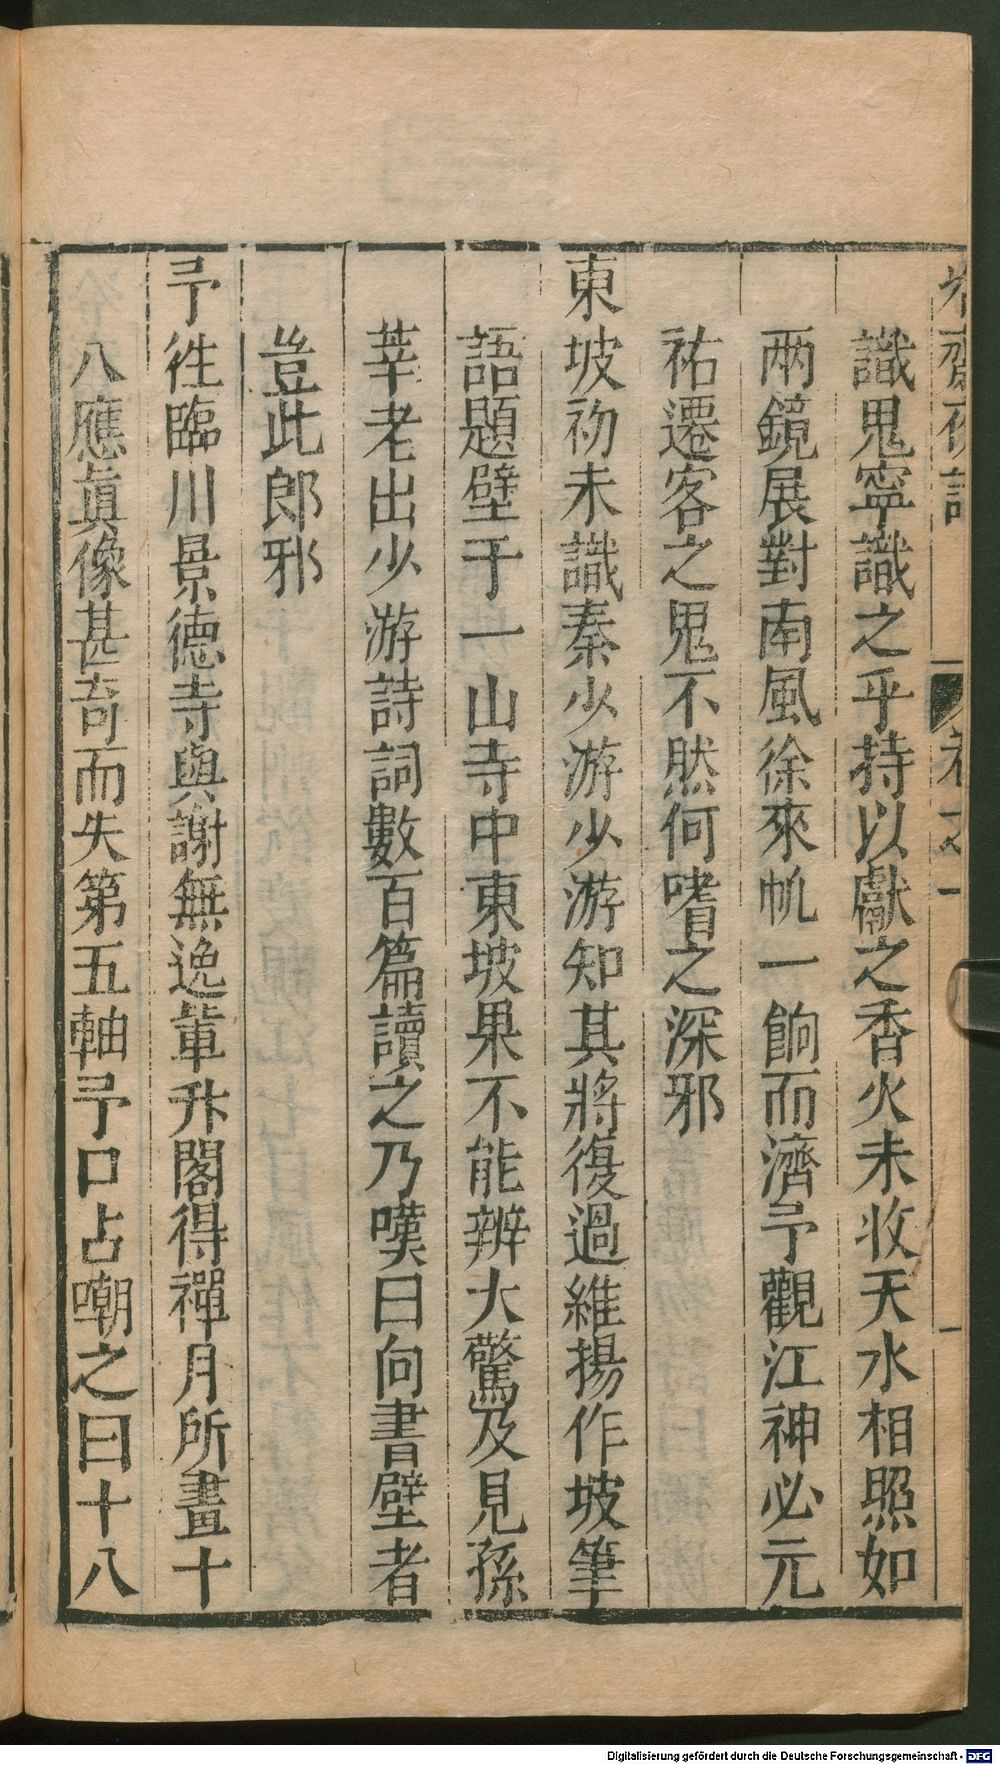 冷齋夜話
卷之一
一
識鬼寧識之乎持以獻之香火未收天水相照如
兩鏡展對南風徐來帆一餉而濟予觀江神必元
祐遷客之鬼不然何嗜之深邪
東坡初未識秦少游少游知其將復過維揚作坡筆
語題壁于一山寺中東坡果不能辨大驚及見孫
莘老出少游詩詞數百篇讀之乃嘆曰向書壁者
豈此郎邪
予徃臨川景德寺與謝無逸軰升閣得禪月所畫十
八應眞像甚奇而失第五軸予口占嘲之曰十八
Digitalisierung gefördert durch die Deutsche Forschungsgemeinschaft - DFG